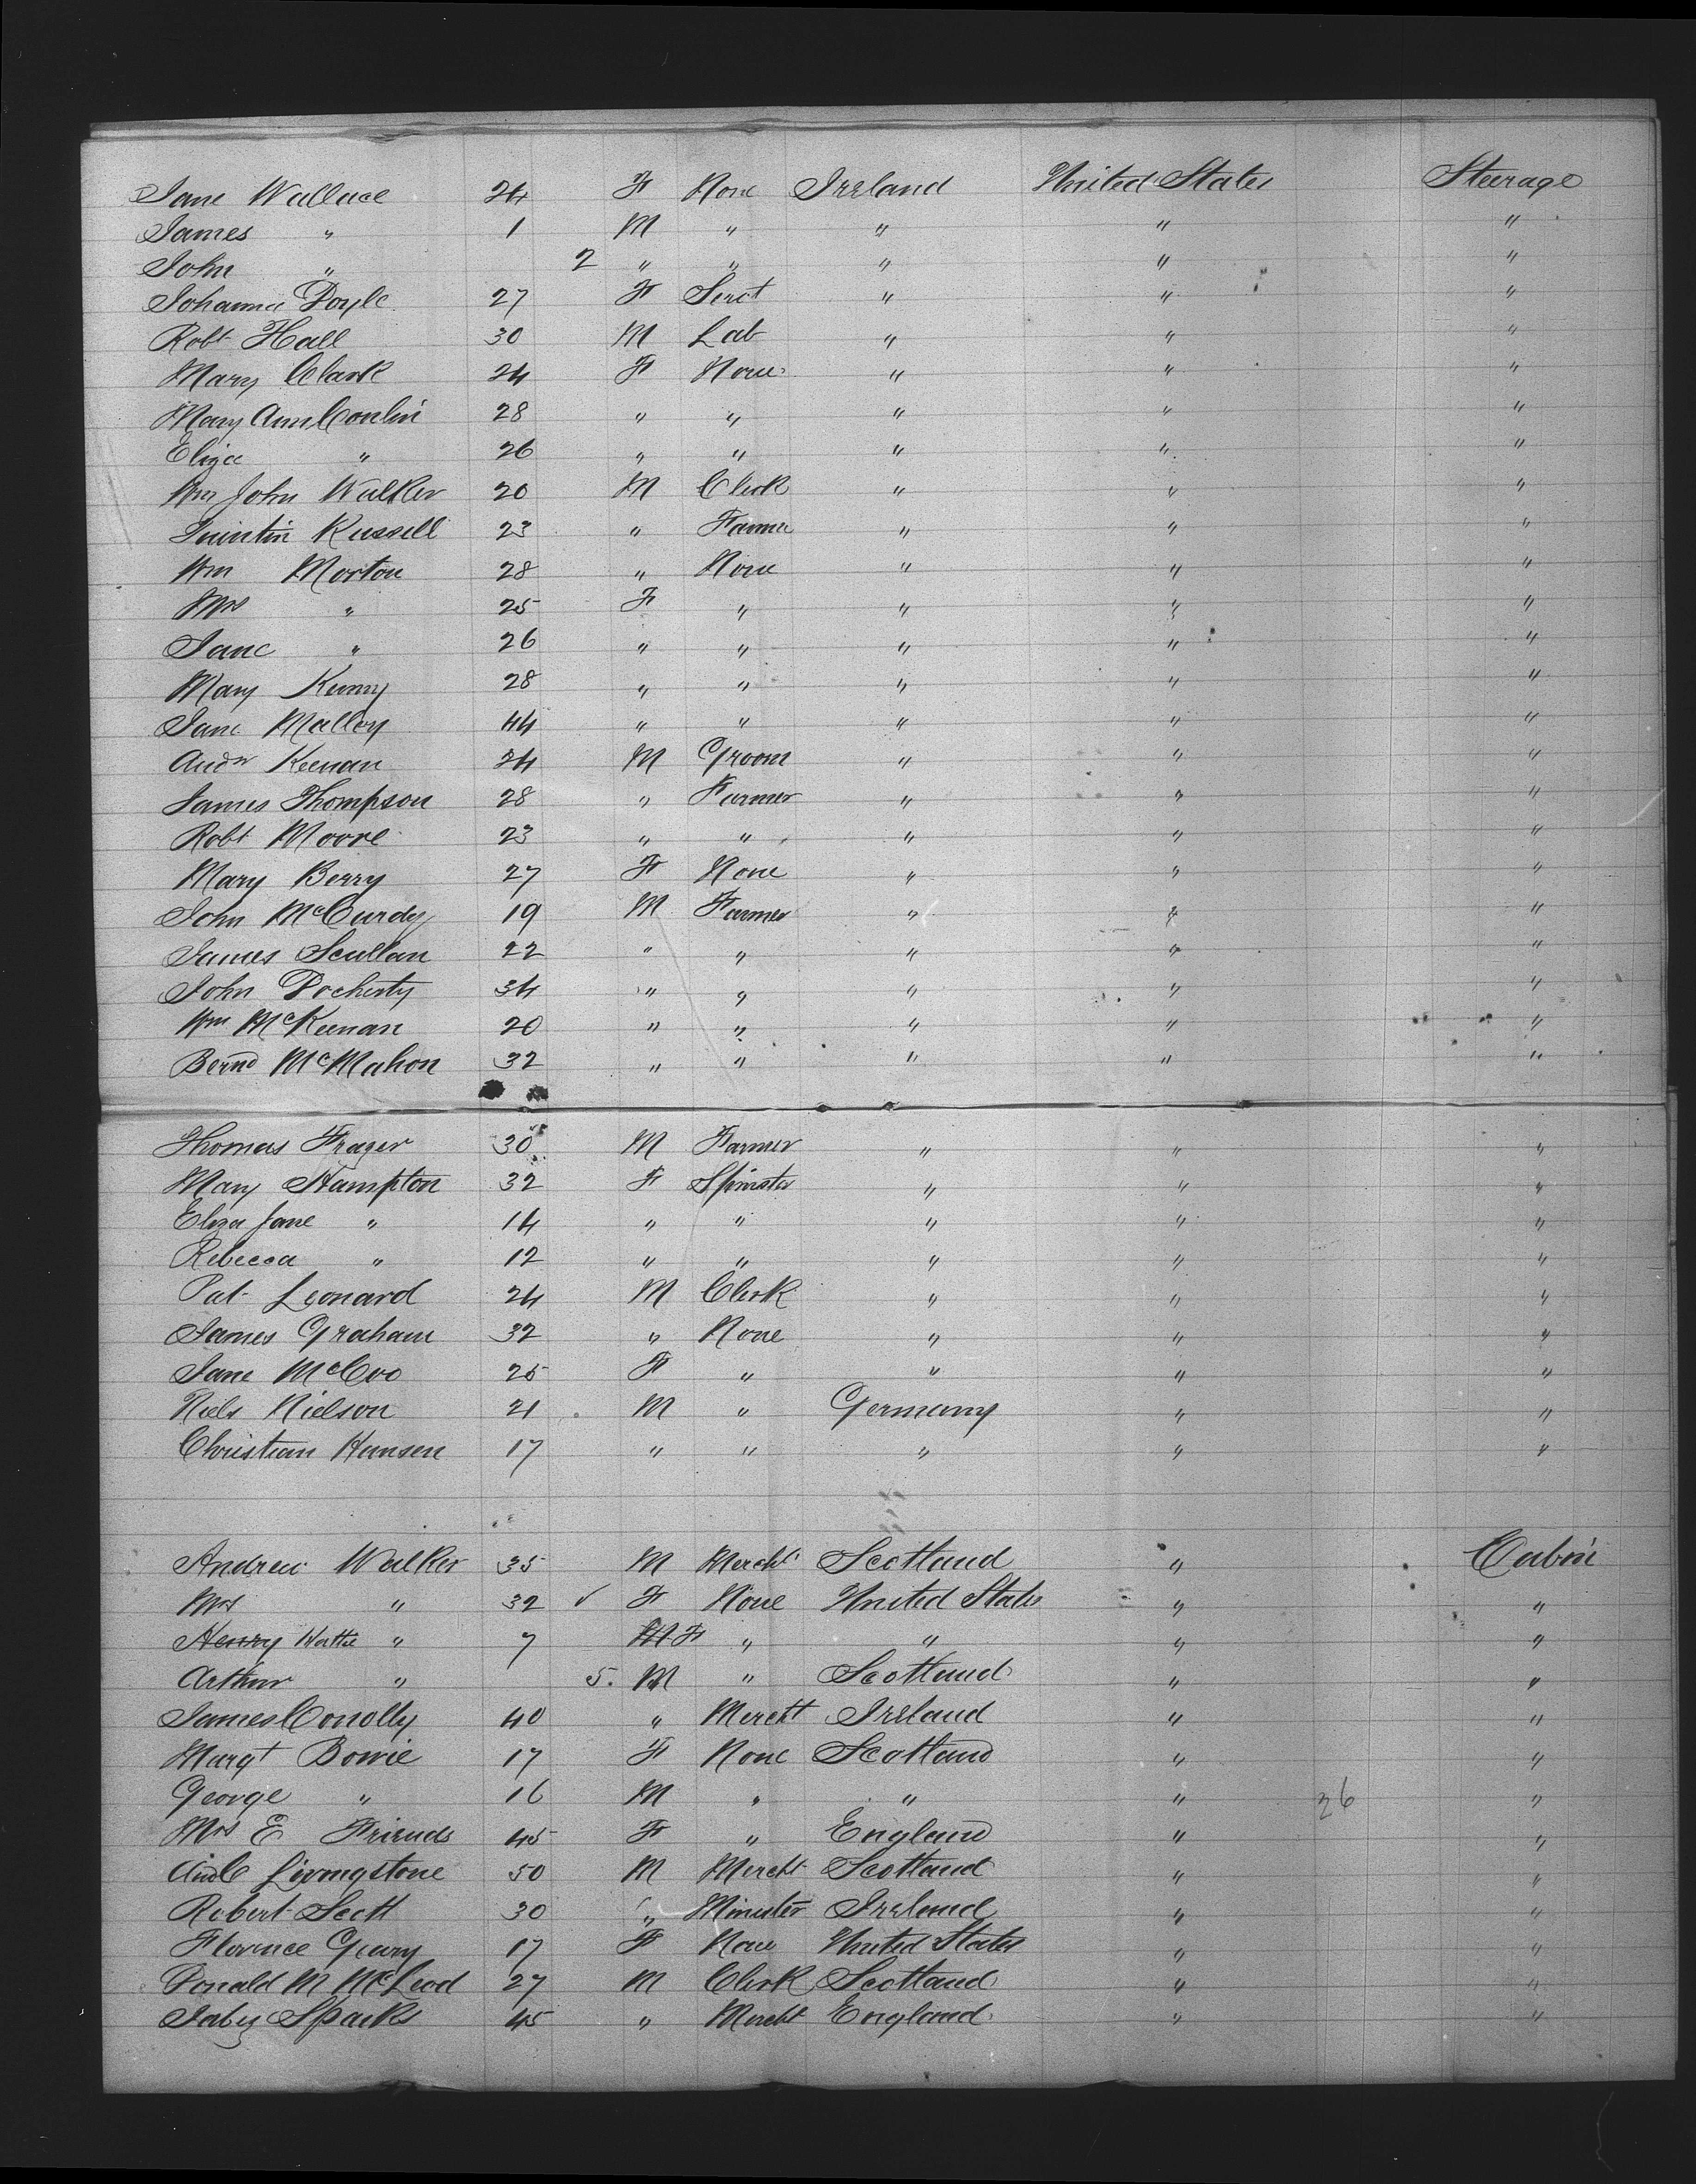 Jane Wallace 24 F None Ireland United States Steerage
James " 1 M " " " "
John " 2 " " " " "
Johanna Doyle 27 F Servt " " "
Robt Hall 30 M Lab " " "
Mary Clark 24 F None " " "
Mary Ann Conlin 28 " " " " "
Eliza " 26 " " " " "
Wm John Walker 20 M Clerk " " "
Quintin Russell 23 " Farmer " " "
Wm Morton 28 " None " " "
Mrs " 25 F " " " "
Jane " 26 " " " " "
Mary Kenny 28 " " " " "
Jane Malloy 44 " " " " "
Andw Keenan 24 M Groom " " "
James Thompson 28 " Farmer " " "
Robt Moore 23 " " " " "
Mary Berry 27 F None " " "
John McCurdy 19 M Farmer " " "
James Scullan 22 " " " " "
John Docherty 34 " " " " "
Wm McKeenan 20 " " " " "
Bernd McMahon 32 " " " " "
Thomas Frazer 30 M Farmer " " "
Mary Hampton 32 F Spinster " " "
Eliza Jane " 14 " " " " "
Rebecca " 12 " " " " "
Pat Leonard 24 M Clerk " " "
James Graham 32 " None " " "
Jane McCoo 25 F " " " "
Niels Nielson 21 M " Germany " "
Christian Hansen 17 " " " " "
Andrew Walker 35 M Mercht Scotland " Cabin
Mrs " 32 ✓ F None United States " "
Henry " 7 M F " " " "
Arthur " 5. M " Scotland " "
James Conolly 40 " Mercht Ireland " "
Margt Bowie 17 F None Scotland " "
George " 16 M " " " 26 "
Mrs E Friends 45 F " England " "
Livingstone 50 M Mercht Scotland " "
Robert Scott 30 " Minister Ireland " "
Florence Geary 17 F None United States " "
Donald M McLeod 27 M Clerk Scotland " "
Jabez Sparks 45 " Mercht England " "